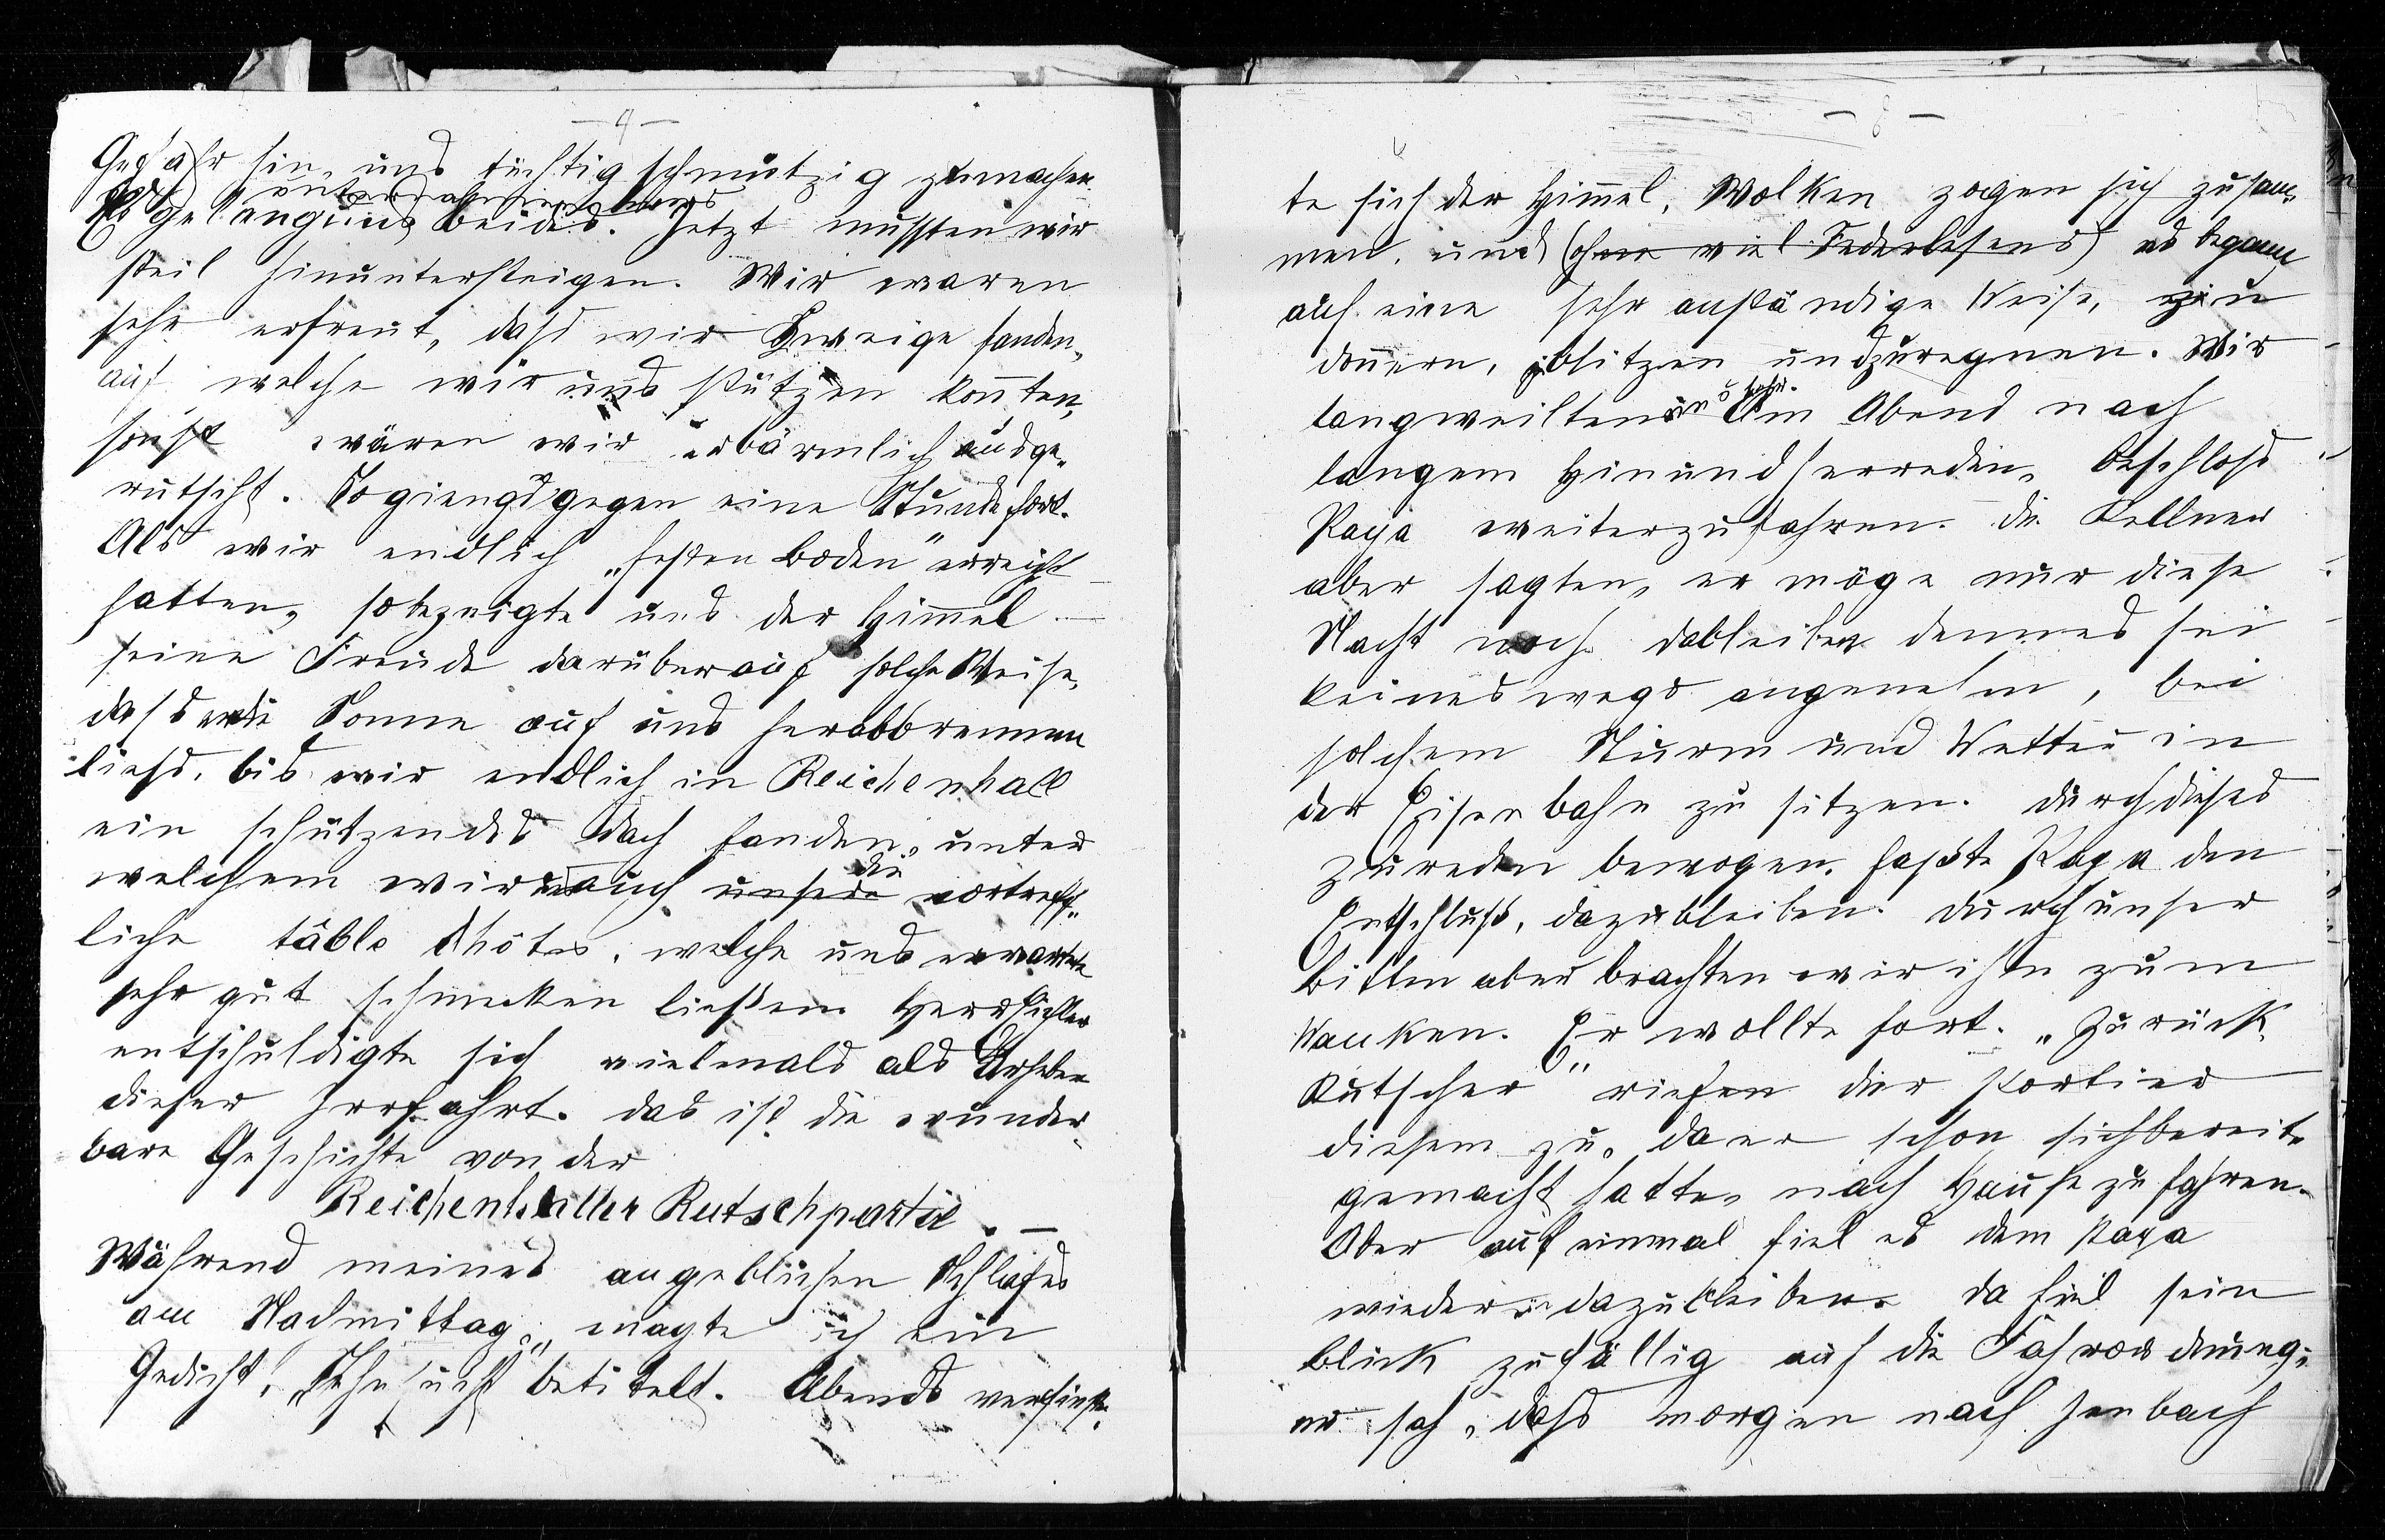 — 4 —
Gefahr hin, uns tüchtig schmutzig zu machen.
Es gelang uns beides. Jetzt mussten wir
steil hinuntersteigen. Wir waren
sehr erfreut, dass wir Zweige fanden,
auf welche wir uns stützen konnten,
sonst wären wir erbärmlich ausge-
rutscht. So gieng's gegen eine Stunde fort.
Als wir endlich „festen Boden“ erreicht
hatten, so bezeigte uns der Himmel
seine Freude darüber auf solche Weise,
dass er die Sonne auf uns herabbrennen
liess, bis wir endlich in Reichenhall
ein schützendes Dach fanden, unter
welchem wir auch unsere die vortreff-
liche tâble d'hôte, welche uns erwartete
sehr gut schmecken liessen. Herr
entschuldigte sich vielmals als Urheber
dieser Irrfahrt. Das ist die wunder-
bare Geschichte von der
Reichenhaller Rutschpartie. —
Während meines angeblichen Schlafes
am Nachmittag, machte ich ein
Gedicht, „Sehnsucht“ betitelt. Abends verfinster-
— 8 —
te sich der Himmel, Wolken zogen sich zusam-
men, und (ohne viel Federlesens) es begann
auf eine sehr anständige Weise, zu
donnern, blitzen und zu regnen. Wir
langweilten uns sehr. Am Abend nach
langem Hinundherreden, beschloss
Papa weiterzufahren. Die Kellner
aber sagten, er möge nur diese
Nacht noch dableiben denn es sei
keineswegs angenehm, bei
solchem Sturm und Wetter in
der Eisenbahn zu sitzen. Durch dieses
Zureden bewogen, fasste Papa den
Entschluß, dazubleiben. Durch unser
Bitten aber brachten wir ihn zum
Wanken. Er wollte fort. „Zurück
Kutscher“ riefen der Portier
diesem zu, da er schon sich bereit
gemacht hatte, nach Hause zu fahren.
Aber auf einmal fiel es dem Papa
wieder ein dazubleiben. Da fiel sein
Blick zufällig auf die Fahrordnung;
er sah, dass morgen nach Jenbach